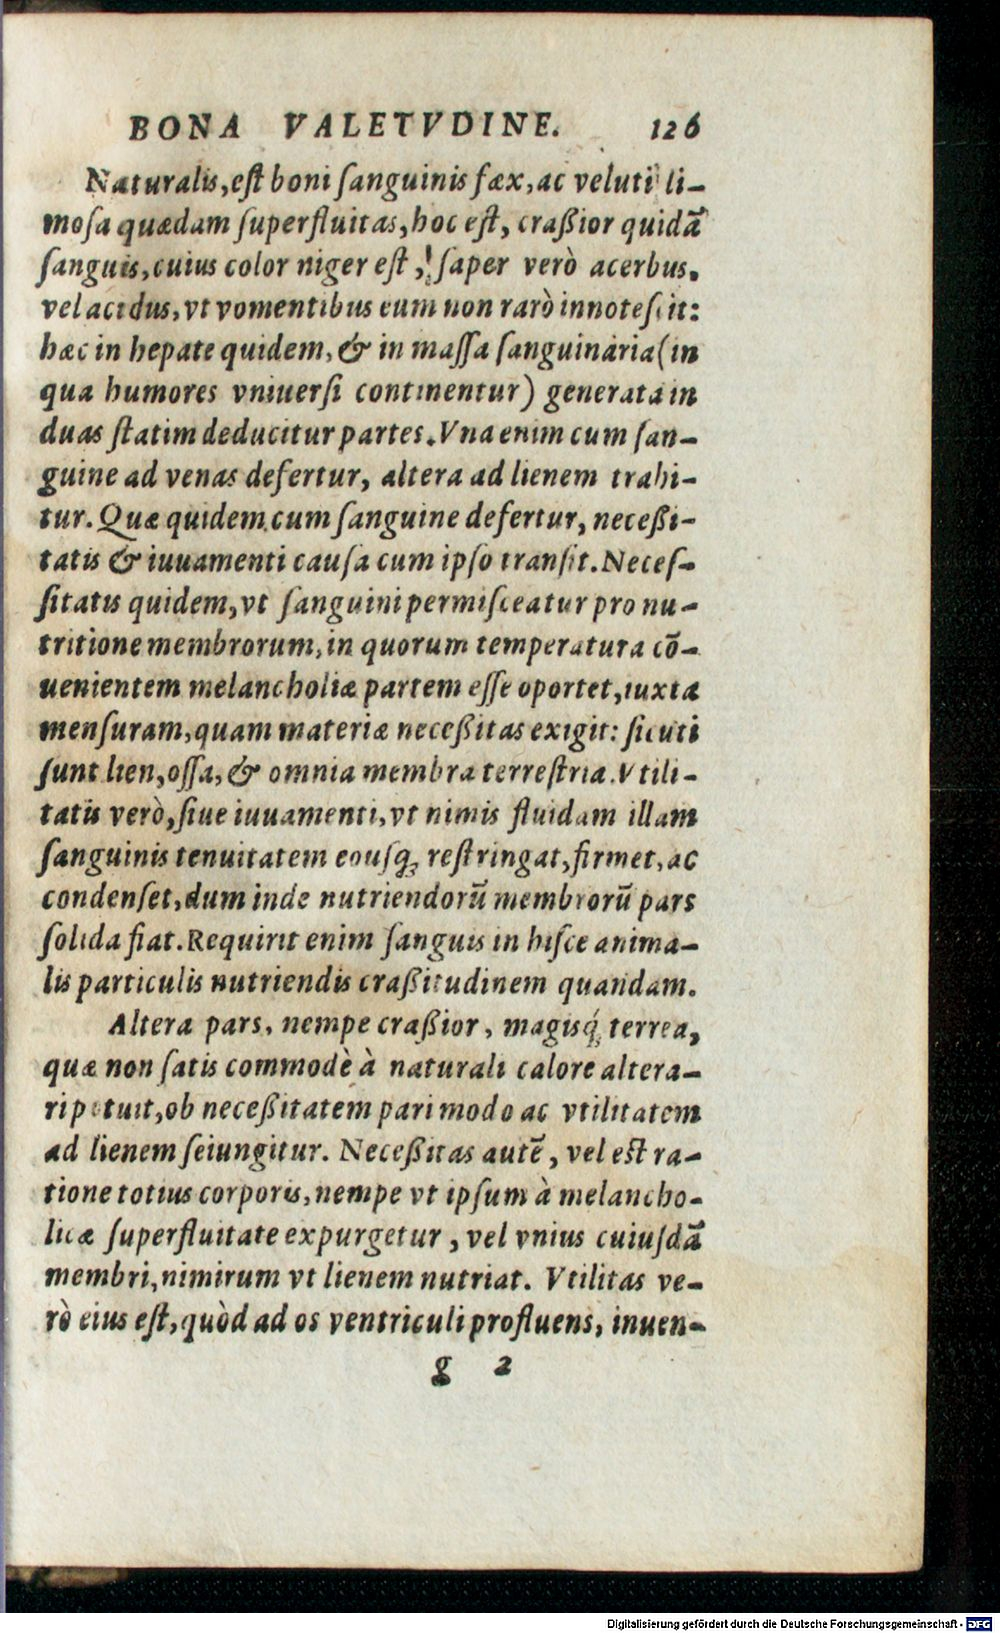 BONA VALETVDINE. 126
Naturalis, eſt boni ſanguinis fæx, ac veluti li-
moſa quædam ſuperfluitas, hoc eſt, craßior quidā
ſanguis, cuius color niger eſt, ſaper verò acerbus,
vel acidus, vt vomentibus eum non rarò innoteſcit:
hæc in hepate quidem, & in maſſa ſanguinaria (in
qua humores vniuerſi continentur) generata in
duas ſtatim deducitur partes. Vna enim cum ſan-
guine ad venas defertur, altera ad lienem trahi-
tur. Quæ quidem cum ſanguine defertur, neceßi-
tatis & iuuamenti cauſa cum ipſo tranſit. Neceſ-
ſitatis quidem, vt ſanguini permiſceatur pro nu-
tritione membrorum, in quorum temperatura cō-
uenientem melancholiæ partem eſſe oportet, iuxta
menſuram, quam materiæ neceßitas exigit: ſicuti
ſunt lien, oſſa, & omnia membra terreſtria. Vtili-
tatis verò, ſiue iuuamenti, vt nimis fluidam illam
ſanguinis tenuitatem eouſq; reſtringat, firmet, ac
condenſet, dum inde nutriendorū membrorū pars
ſolida fiat. Requirit enim ſanguis in hiſce anima-
lis particulis nutriendis craßitudinem quandam.
Altera pars, nempe craßior, magisq́; terrea,
quæ non ſatis commodè à naturali calore altera-
ri potuit, ob neceßitatem pari modo ac vtilitatem
ad lienem ſeiungitur. Neceßitas autē, vel eſt ra-
tione totius corporis, nempe vt ipſum à melancho-
licæ ſuperfluitate expurgetur, vel vnius cuiuſdā
membri, nimirum vt lienem nutriat. Vtilitas ve-
rò eius eſt, quòd ad os ventriculi profluens, inuen-
g 2
Digitalisierung gefördert durch die Deutsche Forschungsgemeinschaft - DFG